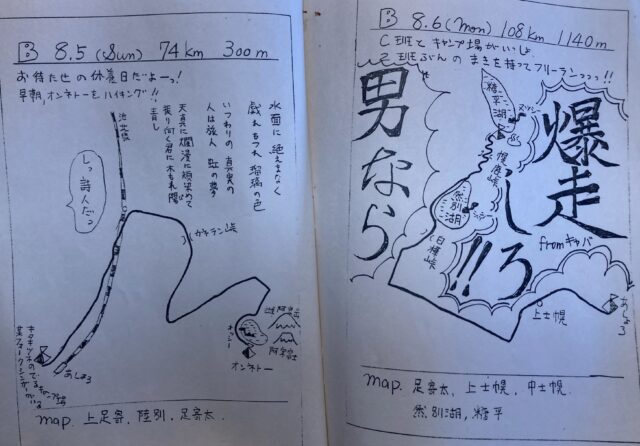 B 8.5 (Sun) 74km 300m
お待たせの休養日だよーっ!
早朝、オンネトーをハイキング!!
水面に絶えまなく
戯れもつれ瑠璃の色
いつわりの真実の
人は旅人 虹の夢
天真に爛漫に
青し
しっ 詩人だっ
池北線
ガケラン峠
雌阿寒岳
阿寒富士
オッシー
オンネトー
あしょろ
map. 上足寄, 陸別, 足寄太.
B 8.6 (Mon) 108km 1140m
C班とキャンプ場がいっしょ.
2班ぶんのまきを持ってフリーランっっっ!!
男なら
爆走
しろ!!
fromキャバ
糠平湖
幌鹿峠
然別湖
白樺峠
上士幌
あしょろ
map. 足寄太, 上士幌, 中士幌.
然別湖, 糠平